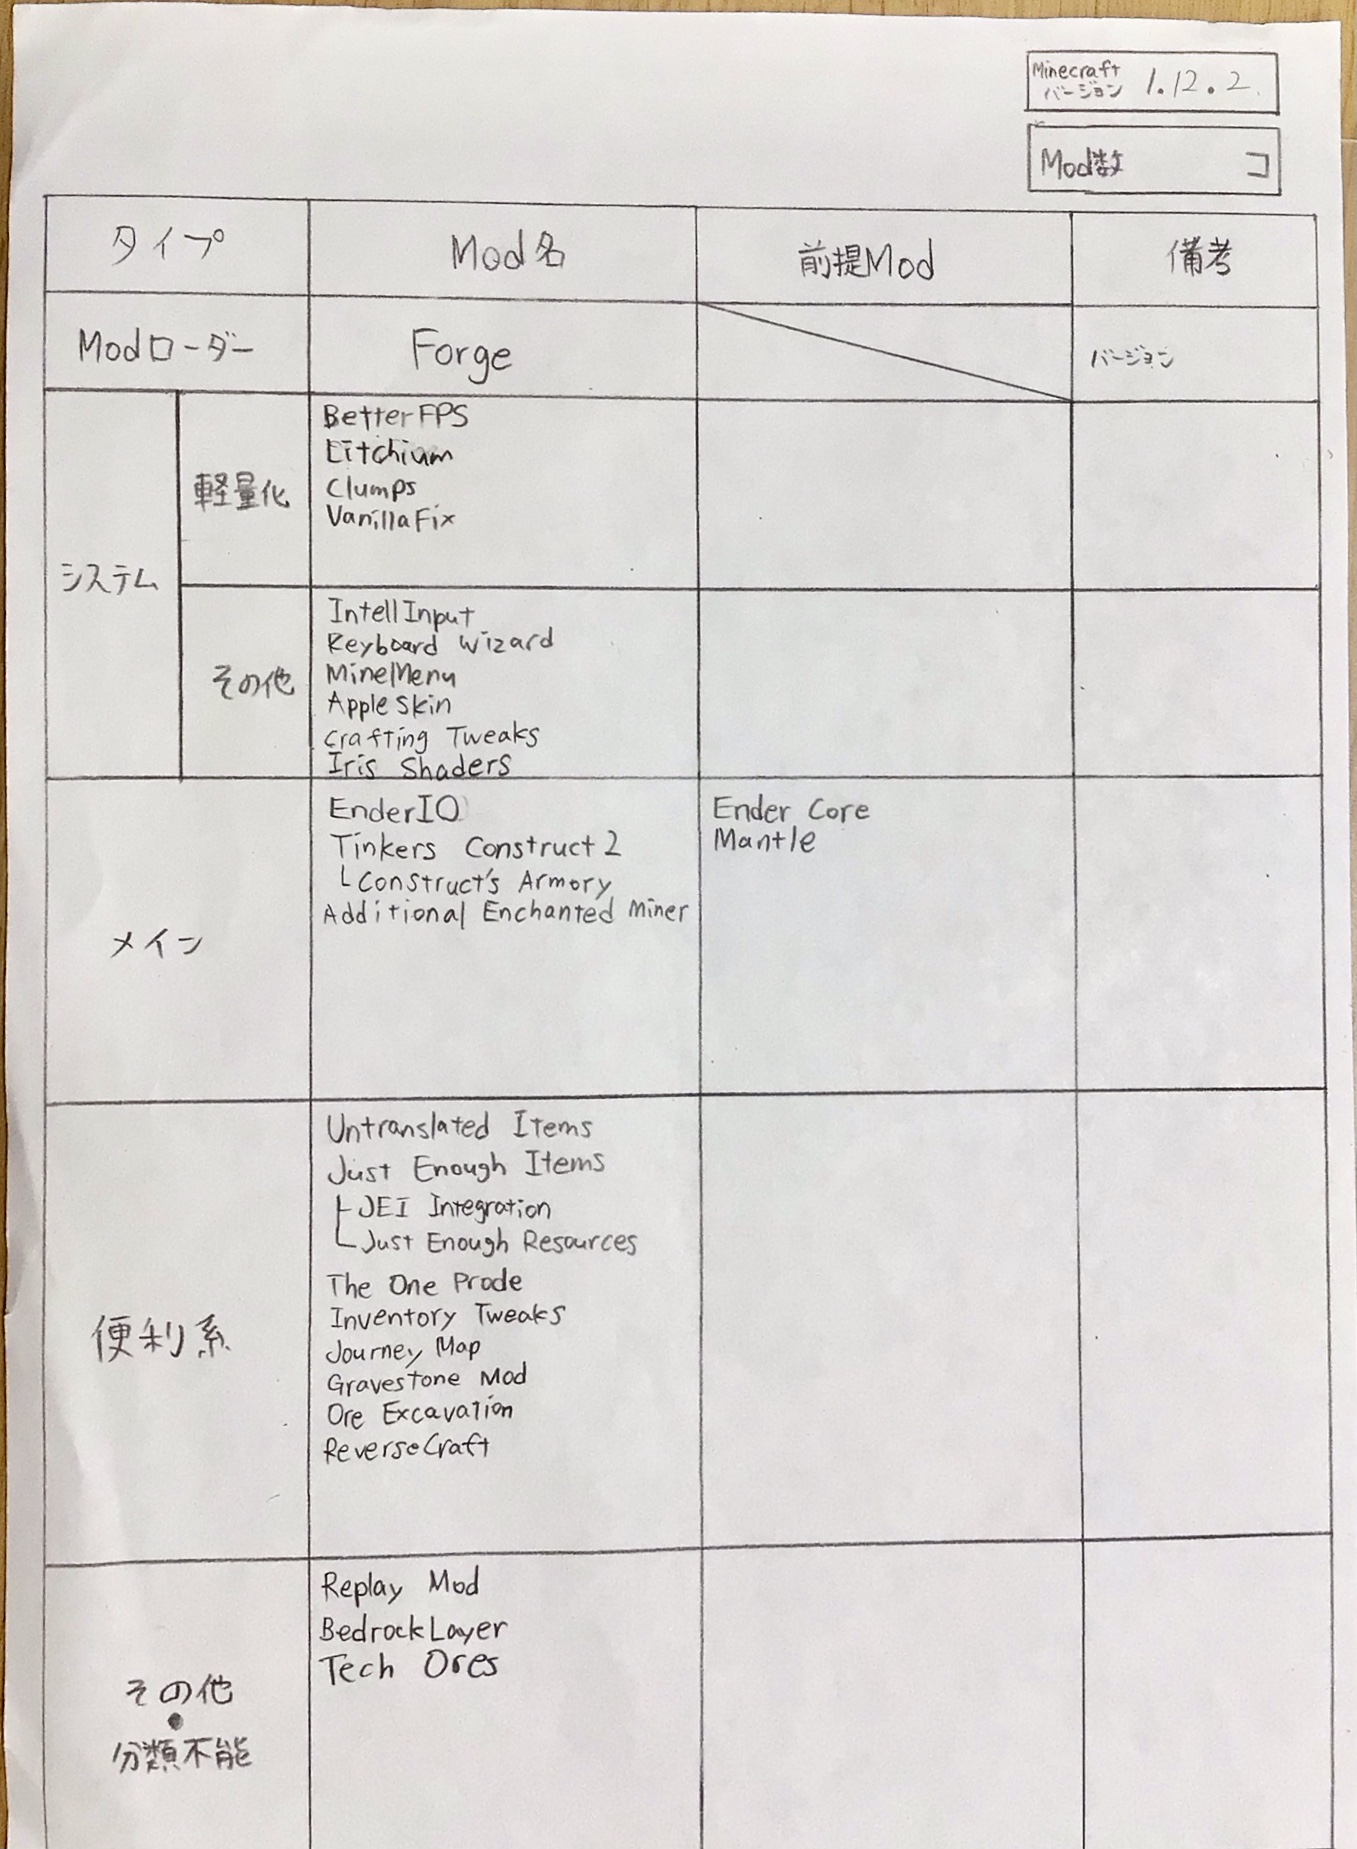 Minecraft
バージョン 1.12.2
Mod数 コ
タイプ Mod名 前提Mod 備考
Modローダー Forge バージョン
システム
軽量化
BetterFPS
Litchium
Clumps
VanillaFix
その他
IntellInput
Keyboard Wizard
MineMenu
AppleSkin
Crafting Tweaks
Iris Shaders
メイン
EnderIO Ender Core
Tinkers Construct 2 Mantle
└Construct's Armory
Additional Enchanted Miner
便利系
Untranslated Items
Just Enough Items
├JEI Integration
└Just Enough Resources
The One Prode
Inventory Tweaks
Journey Map
Gravestone Mod
Ore Excavation
ReverseCraft
その他
・
分類不能
Replay Mod
BedrockLayer
Tech Ores